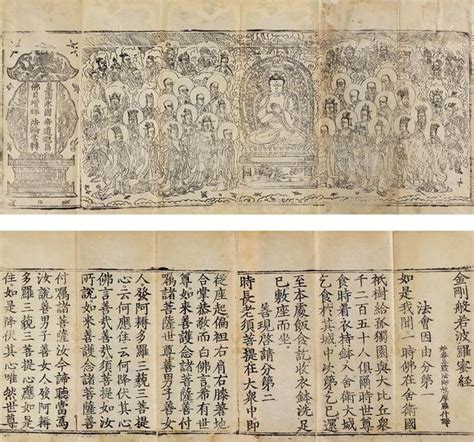 皇圖永固帝道遐昌
佛日增輝法輪常轉
金剛般若波羅蜜經
姚秦三藏法師鳩摩羅什譯
法會因由分第一
如是我聞一時佛在舍衛國
祇樹給孤獨園與大比丘衆
千二百五十人俱爾時世尊
食時着衣持鉢入舍衛大城
乞食於其城中次第乞已還
至本處飯食訖收衣鉢洗足
已敷座而坐
善現啓請分第二
時長老須菩提在大衆中即
從座起偏袒右肩右膝著地
合掌恭敬而白佛言希有世
尊如來善護念諸菩薩善付
囑諸菩薩世尊善男子善女
人發阿耨多羅三藐三菩提
心云何應住云何降伏其心
佛言善哉善哉須菩提如汝
所說如來善護念諸菩薩善
付囑諸菩薩汝今諦聽當爲
汝說善男子善女人發阿耨
多羅三藐三菩提心應如是
住如是降伏其心唯然世尊